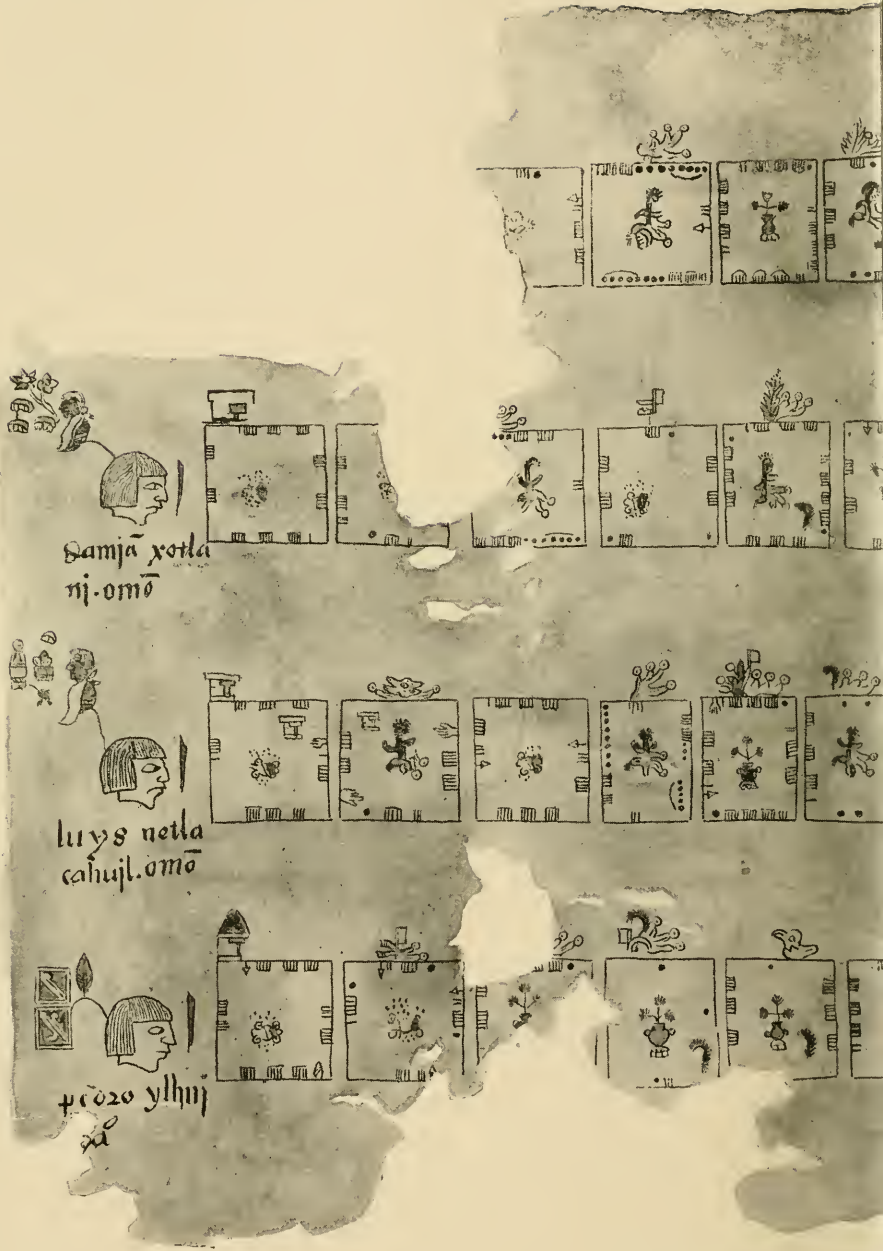 damjā xotla
nj.omō
luys netla
cahujl.omō
pedro ylhuj